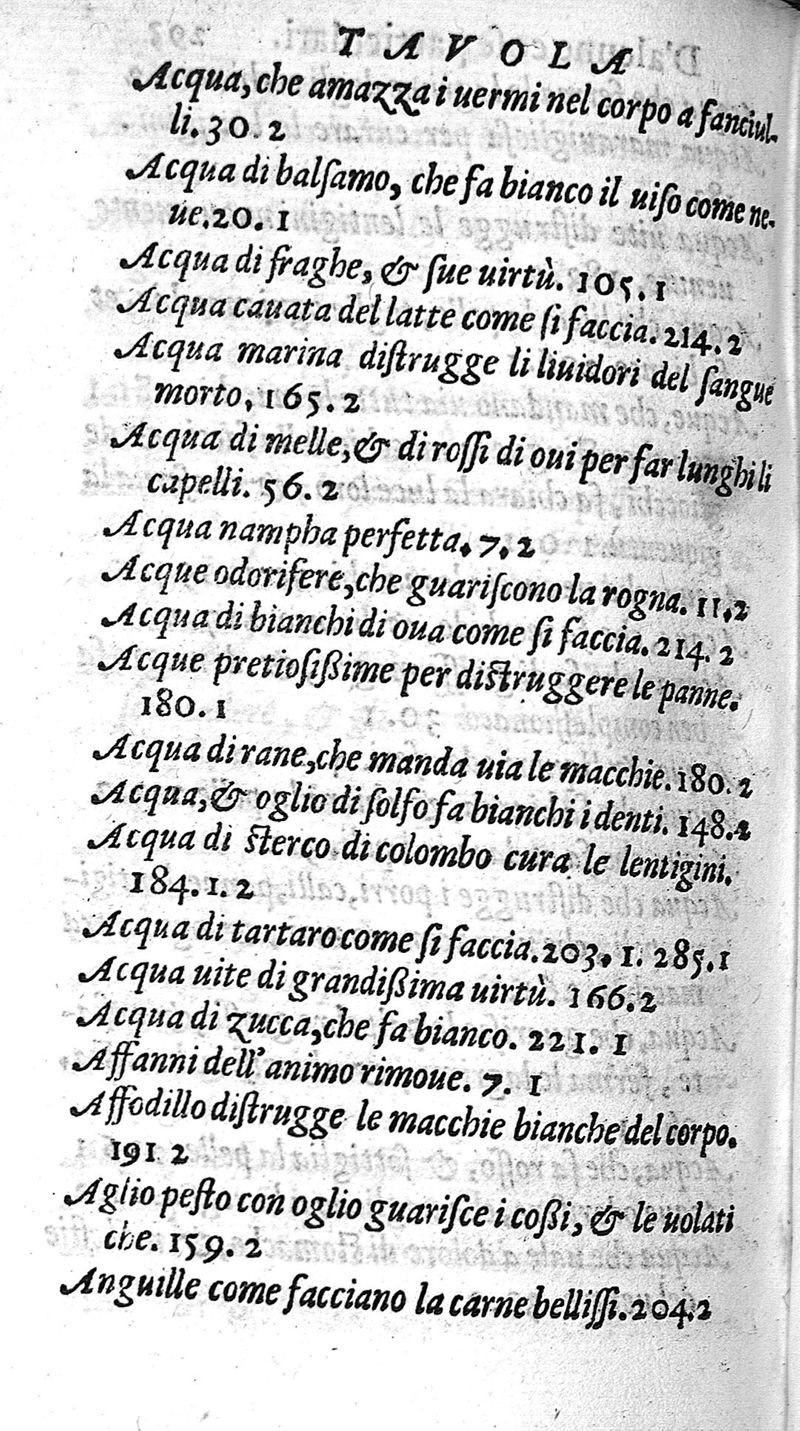 TAVOLA
Acqua, che amazza i uermi nel corpo a fanciul-
li. 30. 2
Acqua di balſamo, che fa bianco il uiſo come ne-
ue. 20. 1
Acqua di fraghe, & ſue uirtù. 105. 1
Acqua cauata del latte come ſi faccia. 214. 2
Acqua marina diſtrugge li liuidori del ſangue
morto, 165. 2
Acqua di melle, & di roſſi di oui per far lunghi li
capelli. 56. 2
Acqua nampha perfetta. 7. 2
Acque odorifere, che guariſcono la rogna. 11. 2
Acqua di bianchi di oua come ſi faccia. 214. 2
Acque pretioſißime per diſtruggere le panne.
180. 1
Acqua di rane, che manda uia le macchie. 180. 2
Acqua, & oglio di ſolfo fa bianchi i denti. 148. 2
Acqua di ſterco di colombo cura le lentigini.
184. 1. 2
Acqua di tartaro come ſi faccia. 203. 1. 285. 1
Acqua uite di grandißima uirtù. 166. 2
Acqua di zucca, che fa bianco. 221. 1
Affanni dell'animo rimoue. 7. 1
Affodillo diſtrugge le macchie bianche del corpo.
191. 2
Aglio peſto con oglio guariſce i coßi, & le uolati
che. 159. 2
Anguille come facciano la carne belliſſi. 204. 2